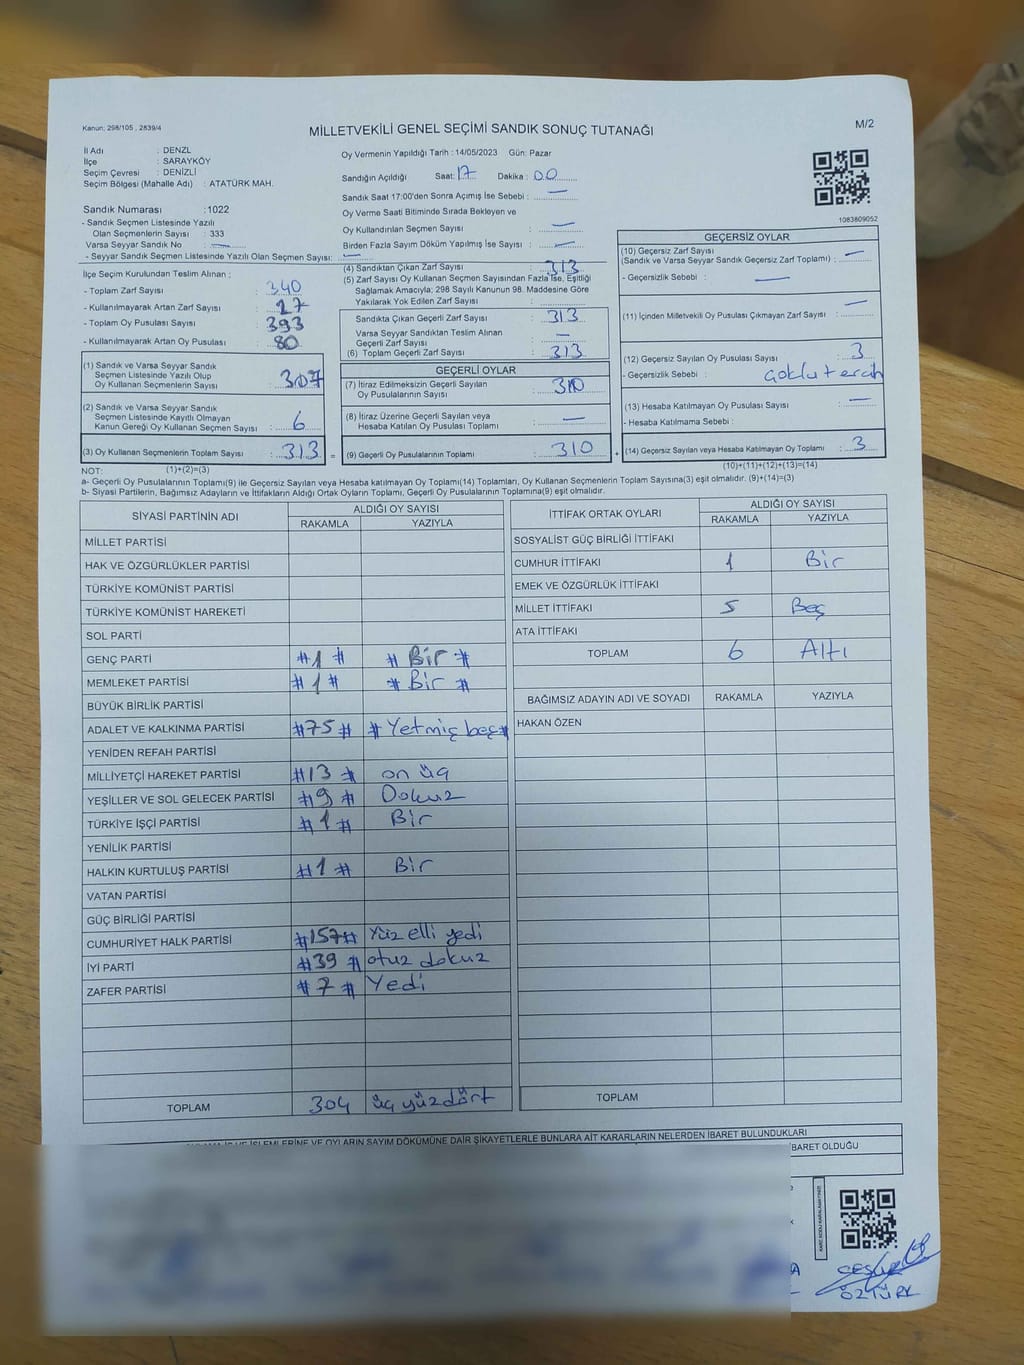 Kanun; 298/105 , 2839/4
MİLLETVEKİLİ GENEL SEÇİMİ SANDIK SONUÇ TUTANAĞI
M/2
İl Adı : DENZL
İlçe : SARAYKÖY
Seçim Çevresi : DENİZLİ
Seçim Bölgesi (Mahalle Adı) : ATATÜRK MAH.
Sandık Numarası :1022
- Sandık Seçmen Listesinde Yazılı
Olan Seçmenlerin Sayısı : 333
Varsa Seyyar Sandık No : —
- Seyyar Sandık Seçmen Listesinde Yazılı Olan Seçmen Sayısı: —
Oy Vermenin Yapıldığı Tarih : 14/05/2023 Gün: Pazar
Sandığın Açıldığı Saat: 17 Dakika : 00
Sandık Saat 17:00'den Sonra Açımış İse Sebebi : —
Oy Verme Saati Bitiminde Sırada Bekleyen ve
Oy Kullandırılan Seçmen Sayısı : —
Birden Fazla Sayım Döküm Yapılmış İse Sayısı : —
1083809052
İlçe Seçim Kurulundan Teslim Alınan ;
- Toplam Zarf Sayısı : 340
- Kullanılmayarak Artan Zarf Sayısı : 27
- Toplam Oy Pusulası Sayısı : 393
- Kullanılmayarak Artan Oy Pusulası : 80
(1) Sandık ve Varsa Seyyar Sandık
Seçmen Listesinde Yazılı Olup
Oy Kullanan Seçmenlerin Sayısı : 307
(2) Sandık ve Varsa Seyyar Sandık
Seçmen Listesinde Kayıtlı Olmayan
Kanun Gereği Oy Kullanan Seçmen Sayısı : 6
(3) Oy Kullanan Seçmenlerin Toplam Sayısı : 313
(4) Sandıktan Çıkan Zarf Sayısı : 313
(5) Zarf Sayısı Oy Kullanan Seçmen Sayısından Fazla İse, Eşitliği
Sağlamak Amacıyla; 298 Sayılı Kanunun 98. Maddesine Göre
Yakılarak Yok Edilen Zarf Sayısı :
Sandıkta Çıkan Geçerli Zarf Sayısı : 313
Varsa Seyyar Sandıktan Teslim Alınan
Geçerli Zarf Sayısı : —
(6) Toplam Geçerli Zarf Sayısı : 313
GEÇERLİ OYLAR
(7) İtiraz Edilmeksizin Geçerli Sayılan
Oy Pusulalarının Sayısı : 310
(8) İtiraz Üzerine Geçerli Sayılan veya
Hesaba Katılan Oy Pusulası Toplamı : —
= (9) Geçerli Oy Pusulalarının Toplamı : 310
GEÇERSİZ OYLAR
(10) Geçersiz Zarf Sayısı
(Sandık ve Varsa Seyyar Sandık Geçersiz Zarf Toplamı) : —
- Geçersizlik Sebebi : —
(11) İçinden Milletvekili Oy Pusulası Çıkmayan Zarf Sayısı : —
(12) Geçersiz Sayılan Oy Pusulası Sayısı : 3
- Geçersizlik Sebebi : çoklu tercih
(13) Hesaba Katılmayan Oy Pusulası Sayısı : —
- Hesaba Katılmama Sebebi :
+ (14) Geçersiz Sayılan veya Hesaba Katılmayan Oy Toplamı : 3
NOT: (1)+(2)=(3)
(10)+(11)+(12)+(13)=(14)
a- Geçerli Oy Pusulalarının Toplamı(9) ile Geçersiz Sayılan veya Hesaba Katılmayan Oy Toplamı(14) Toplamları, Oy Kullanan Seçmenlerin Toplam Sayısına(3) eşit olmalıdır. (9)+(14)=(3)
b- Siyasi Partilerin, Bağımsız Adayların ve İttifakların Aldığı Ortak Oyların Toplamı, Geçerli Oy Pusulalarının Toplamına(9) eşit olmalıdır.
SİYASİ PARTİNİN ADI ALDIĞI OY SAYISI
RAKAMLA YAZIYLA
MİLLET PARTİSİ
HAK VE ÖZGÜRLÜKLER PARTİSİ
TÜRKİYE KOMÜNİST PARTİSİ
TÜRKİYE KOMÜNİST HAREKETİ
SOL PARTİ
GENÇ PARTİ #1# #Bir#
MEMLEKET PARTİSİ #1# #Bir#
BÜYÜK BİRLİK PARTİSİ
ADALET VE KALKINMA PARTİSİ #75# #Yetmiş beş#
YENİDEN REFAH PARTİSİ
MİLLİYETÇİ HAREKET PARTİSİ #13# on üç
YEŞİLLER VE SOL GELECEK PARTİSİ #9# Dokuz
TÜRKİYE İŞÇİ PARTİSİ #1# Bir
YENİLİK PARTİSİ
HALKIN KURTULUŞ PARTİSİ #1# Bir
VATAN PARTİSİ
GÜÇ BİRLİĞİ PARTİSİ
CUMHURİYET HALK PARTİSİ #157# Yüz elli yedi
İYİ PARTİ #39# otuz dokuz
ZAFER PARTİSİ #7# Yedi
TOPLAM 304 üç yüz dört
İTTİFAK ORTAK OYLARI ALDIĞI OY SAYISI
RAKAMLA YAZIYLA
SOSYALİST GÜÇ BİRLİĞİ İTTİFAKI
CUMHUR İTTİFAKI 1 Bir
EMEK VE ÖZGÜRLÜK İTTİFAKI
MİLLET İTTİFAKI 5 Beş
ATA İTTİFAKI
TOPLAM 6 Altı
BAĞIMSIZ ADAYIN ADI VE SOYADI RAKAMLA YAZIYLA
HAKAN ÖZEN
TOPLAM
İŞLEMLERİNE VE OYLARIN SAYIM DÖKÜMÜNE DAİR ŞİKAYETLERLE BUNLARA AİT KARARLARIN NELERDEN İBARET BULUNDUKLARI
İBARET OLDUĞU
ÖZTÜRK